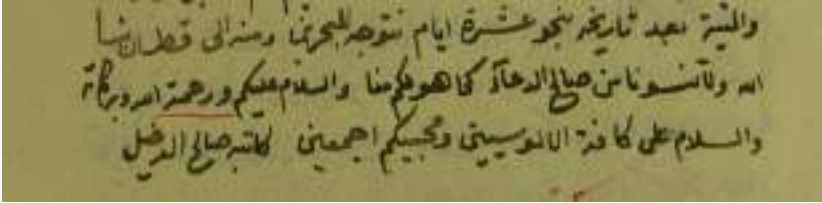 والنية بعد تاريخه بنحو عشرة ايام نتوجه للبحرين ومنه الى قطر ان شا
الله ولا تنسونا من صالح الدعاء كما هو لكم منا والسلام عليكم ورحمة الله وبركاته
والسلام على كافة الالوسيين ومحبيكم اجمعين كاتبه صالح الدخيل